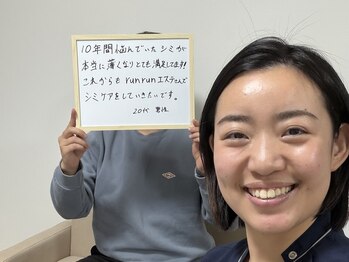 10年間悩んでいたシミが
本当に薄くなりとても満足してます!
これからも runrunエステさんで
シミケアをしていきたいです。
20代 男性